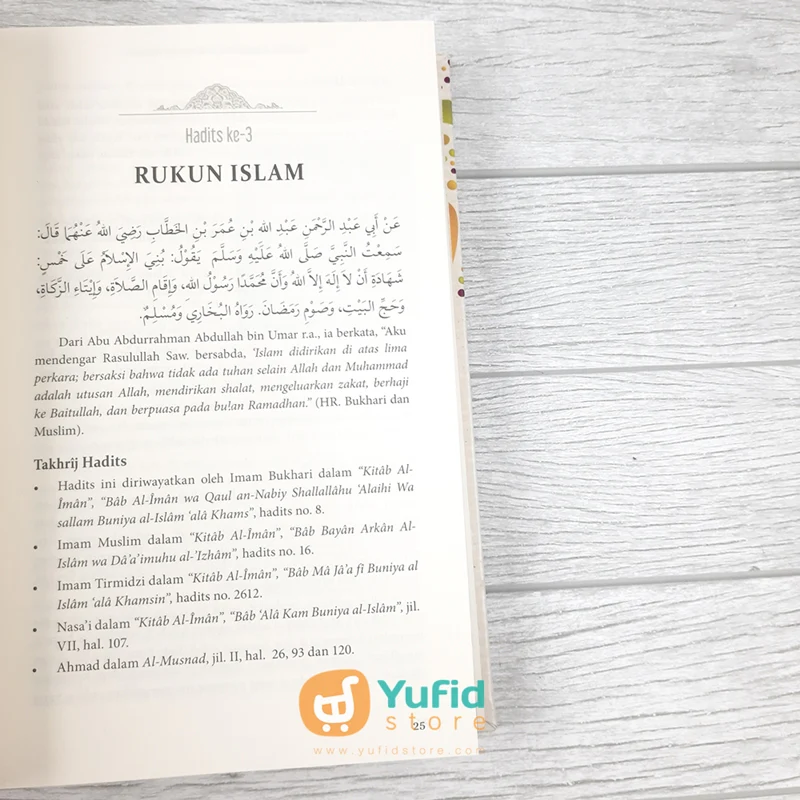 Hadits ke-3
RUKUN ISLAM
عَنْ أَبِي عَبْدِ الرَّحْمَنِ عَبْدِ اللهِ بْنِ عُمَرَ بْنِ الخَطَّابِ رَضِيَ اللهُ عَنْهُمَا قَالَ:
سَمِعْتُ النَّبِيَّ صَلَّى اللهُ عَلَيْهِ وَسَلَّمَ يَقُوْلُ: بُنِيَ الإِسْلاَمُ عَلَى خَمْسٍ:
شَهَادَةِ أَنْ لاَ إِلَهَ إِلاَّ اللهُ وَأَنَّ مُحَمَّدًا رَسُوْلُ اللهِ، وَإِقَامِ الصَّلاَةِ، وَإِيْتَاءِ الزَّكَاةِ،
وَحَجِّ البَيْتِ، وَصَوْمِ رَمَضَانَ. رَوَاهُ البُخَارِي وَمُسْلِمٌ.
Dari Abu Abdurrahman Abdullah bin Umar r.a., ia berkata, “Aku
mendengar Rasulullah Saw. bersabda, ‘Islam didirikan di atas lima
perkara; bersaksi bahwa tidak ada tuhan selain Allah dan Muhammad
adalah utusan Allah, mendirikan shalat, mengeluarkan zakat, berhaji
ke Baitullah, dan berpuasa pada bulan Ramadhan.” (HR. Bukhari dan
Muslim).
Takhrîj Hadits
• Hadits ini diriwayatkan oleh Imam Bukhari dalam “Kitâb Al-
Îmân”, “Bâb Al-Îmân wa Qaul an-Nabiy Shallallâhu ‘Alaihi Wa
sallam Buniya al-Islâm ‘alâ Khams”, hadits no. 8.
• Imam Muslim dalam “Kitâb Al-Îmân”, “Bâb Bayân Arkân Al-
Islâm wa Dâ’a’imuhu al-’Izhâm”, hadits no. 16.
• Imam Tirmidzi dalam “Kitâb Al-Îmân”, “Bâb Mâ Jâ’a fî Buniya al
Islâm ‘alâ Khamsin”, hadits no. 2612.
• Nasa’i dalam “Kitâb Al-Îmân”, “Bâb ‘Alâ Kam Buniya al-Islâm”, jil.
VII, hal. 107.
• Ahmad dalam Al-Musnad, jil. II, hal. 26, 93 dan 120.
25
Yufid
store
www.yufidstore.com